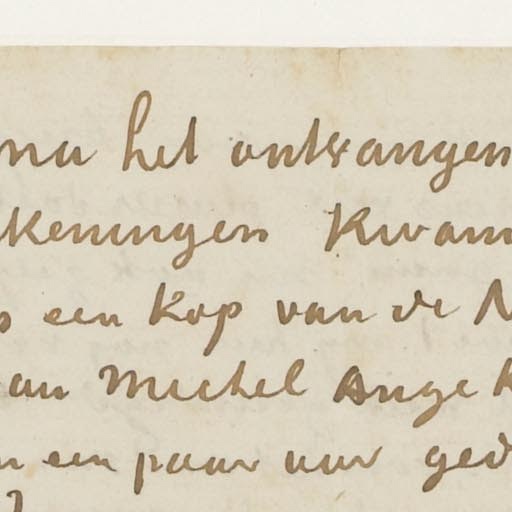 na het ontvangen
keningen kwam
een kop van de N
an Michel Ange k
n een paar uur ged